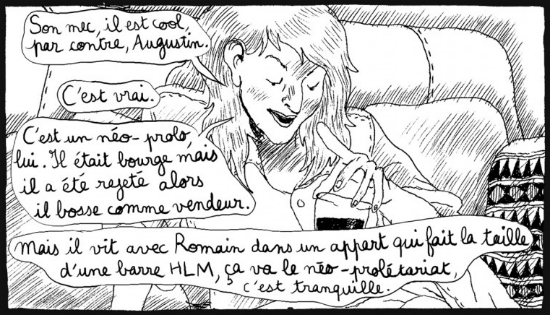 Son mec, il est cool,
par contre, Augustin.
C'est vrai.
C'est un néo-prolo,
lui. Il était bourge mais
il a été rejeté alors
il bosse comme vendeur.
Mais il vit avec Romain dans un appart qui fait la taille
d'une barre HLM, ça va le néo-prolétariat,
c'est tranquille.